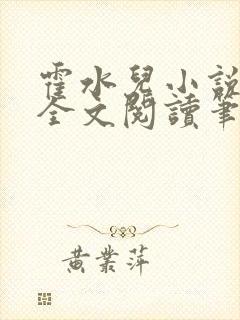 霍水兒小說
全文閱讀筆
黃業萍